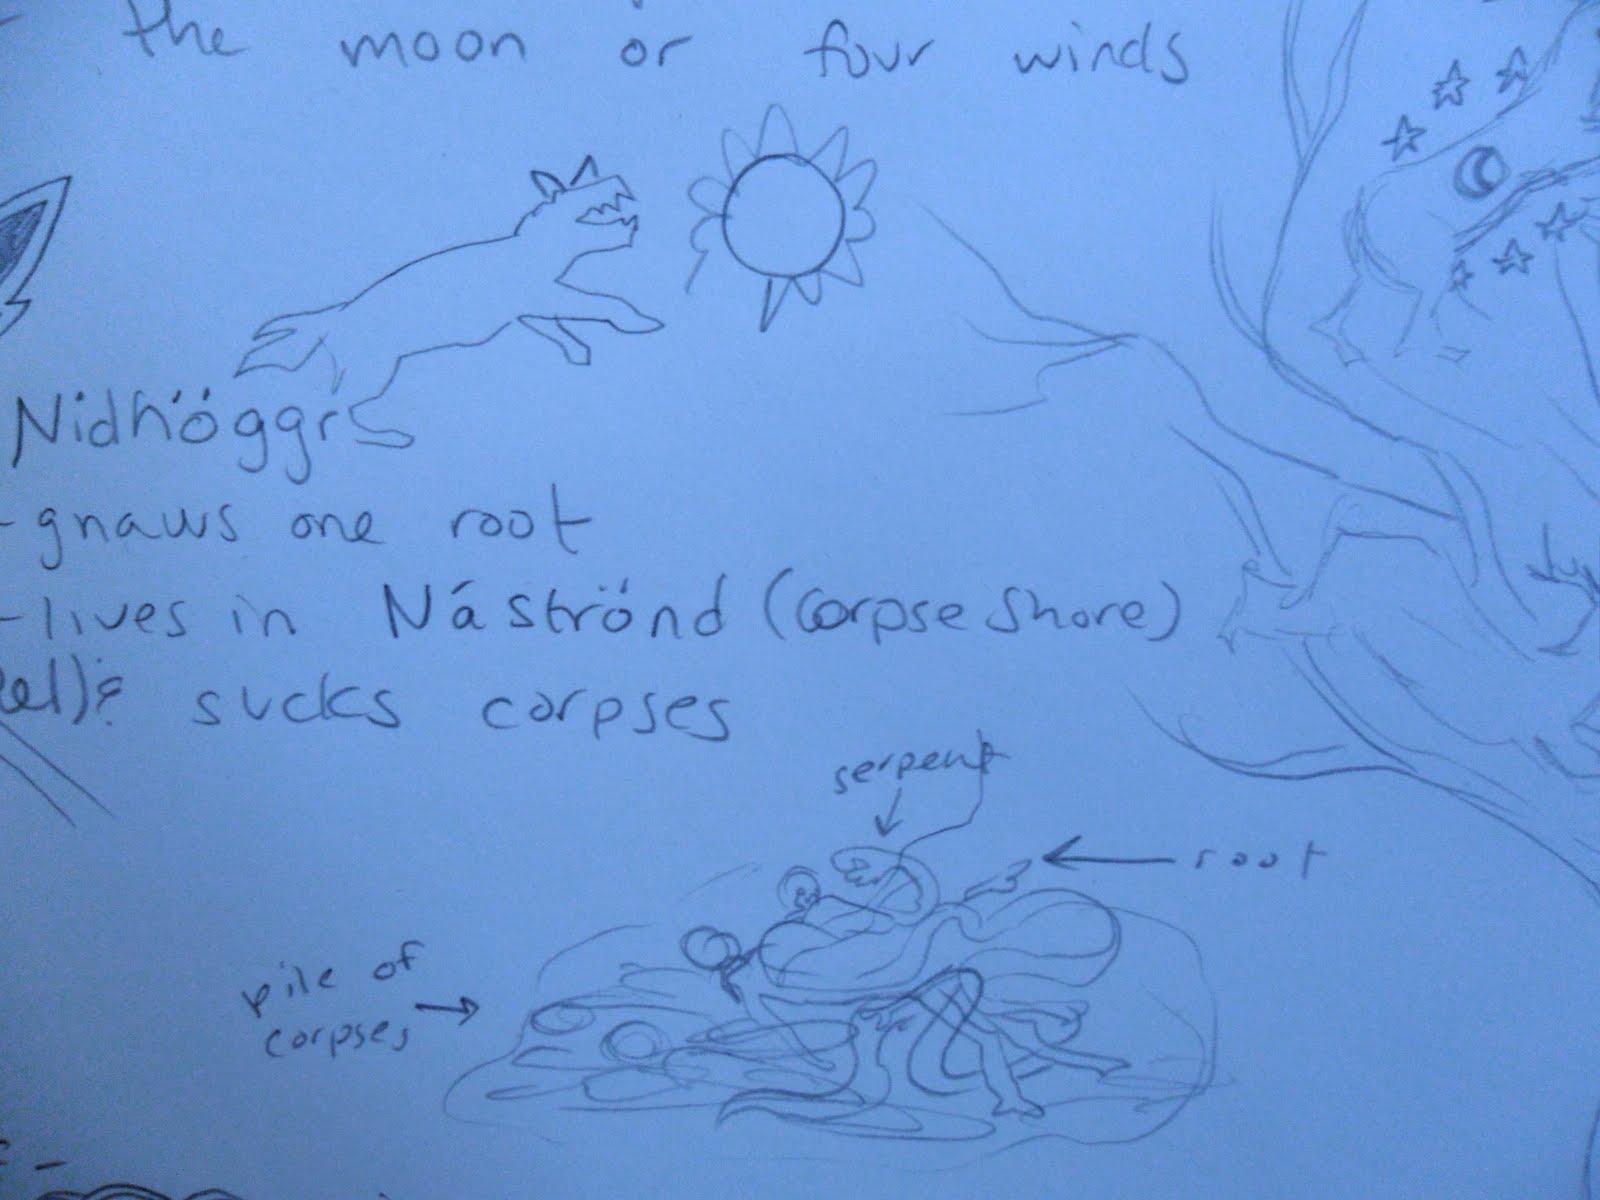 the moon or four winds
Nidhöggr
- gnaws one root
- lives in Náströnd (corpse shore)
el) & sucks corpses
serpent
root
pile of
corpses